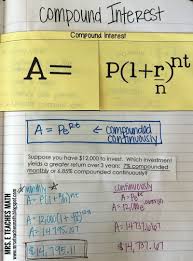 Compound Interest
Compound Interest
A=
P(1+r/n)^nt
A = Pe^rt ← compounded continuously
Suppose you have $12,000 to invest. Which investment
yields a greater return over 3 years: 7% compounded
monthly or 6.85% compounded continuously?
monthly
$14,795.11
continuously
A = Pe^rt
$14,737.67
MRS. E TEACHES MATH